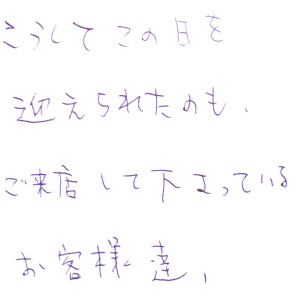 こうしてこの日を
迎えられたのも、
ご来店して下さっている
お客様達、